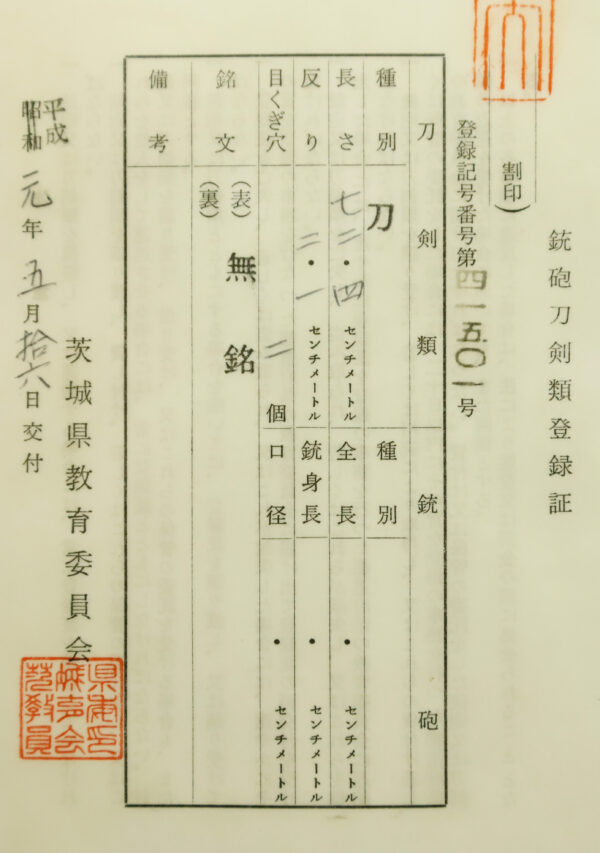 銃砲刀剣類登録証
割印)
登録記号番号第四一五〇一号
刀剣類
銃砲
種別
刀
種別
長さ
七二・四
センチメートル
全長
・センチメートル
反り
二・一
センチメートル
銃身長
・センチメートル
目くぎ穴
二
個
口径
・センチメートル
銘文
(表)
無銘
(裏)
備考
茨城県教育委員会
平成
昭和
元年五月拾六日交付